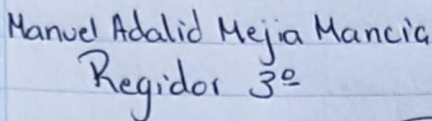 Manuel Adalid Mejia Mancia
Regidor 3º